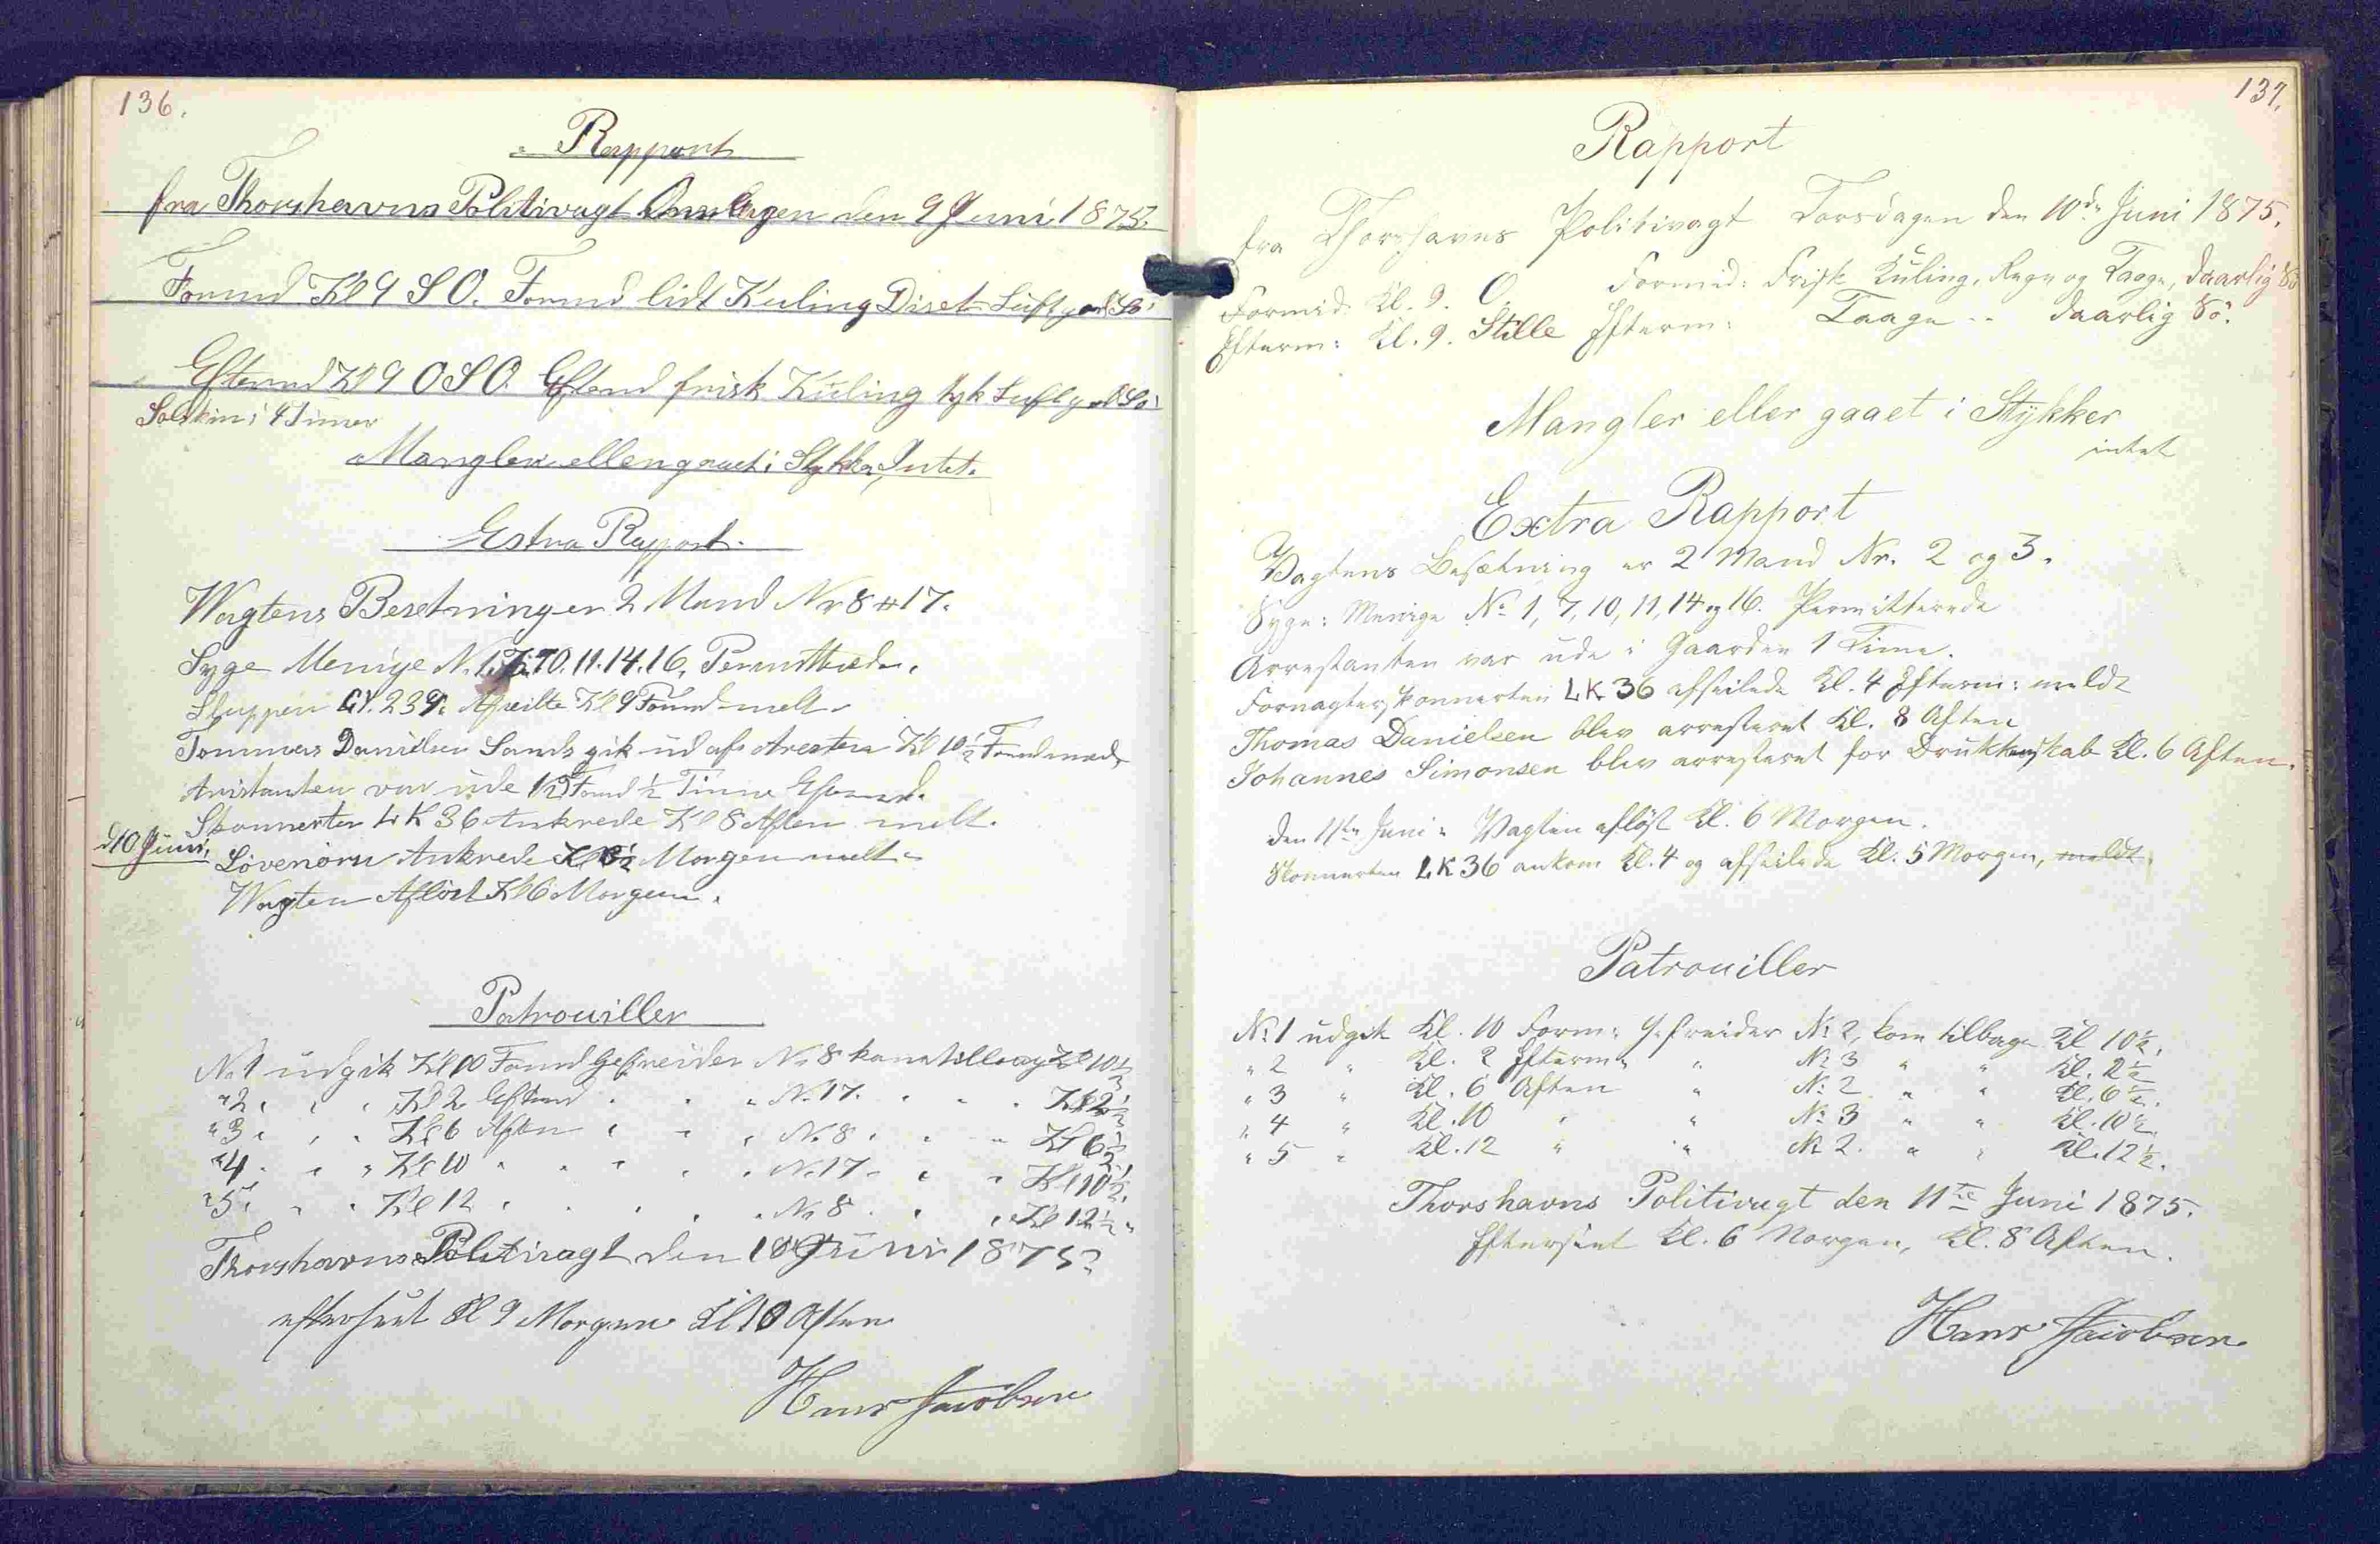 136.
Rapport
fra Thorshavns Politivagt Onsdagen den 9 Juni 1875.
Formd. Kl 9 S O. Formd lidt Kuling Diset Luft god Sö
Eftermd Kl 9 O S O. Eftmd frisk Kuling tyk Luft god Sö
Solskin i 4 Timer
Mangler eller gaaet i Stykker, Intet.
Extra Rapport.
Wagtens Besetning er 2 Mand Nr 8 & 17.
Syge Menige N. 1. 7. 10. 11. 14. 16. Permitterede.
Sluppen 239. Afseilte Kl 9 Formd melt
Tommas Danielsen Sands gik ud af Aresten Kl 10½ Formd
Aristanten var ude ½ Formd ½ Time Efmd.
Skonnerten LK 36 Ankrede Kl 8 Aften melt.
d 10 Juni, Lövenörn Ankrede Kl Morgen melt
Wagten Aflöst Kl 6 Morgen.
Patrouiller
N. 1 udgik Kl 10 Formd Gefreider No 8 kom tilbage Kl 10½
" 2 " " " Kl 2 Eftmd " " " No 17. " " " Kl 2½
" 3 " " " Kl 6 Aften " " " No 8 " " " Kl 6½
" 4 " " " Kl 10 " " " " No 17 " " " Kl 10½
" 5 " " " Kl 12 " " " " No 8 " " " Kl 12½
Thorshavns Politivagt den 10 Juni 1875
efterseet Kl 9 Morgen Kl 10 Aften
Hans Jacobsen
137.
Rapport
fra Thorshavns Politivagt Torsdagen den 10de Juni 1875.
Formid: Kl. 9. O. Formid: Frisk Kuling, Regn og Taage, daarlig Sö
Efterm: Kl. 9. Stille Efterm: Taage " daarlig Sö.
Mangler eller gaaet i Stykker
intet
Extra Rapport
Vagtens Besætning er 2 Mand Nr. 2 og 3.
Syge: Menige No 1, 7, 10, 11, 14 og 16. Permitterede
Arrestanten var ude i Gaarden 1 Time.
Fornagterskonnerten LK 36 afseilede Kl. 4 Efterm: meldt
Thomas Danielsen blev arresteret Kl. 8 Aften
Johannes Simonsen blev arresteret for Drukkenskab Kl. 6 Aften.
den 11te Juni: Vagten aflöst Kl. 6 Morgen.
Skonnerten LK 36 ankom Kl. 4 og afseilede Kl. 5 Morgen, meldt.
Patrouiller
No 1 udgik Kl. 10 Form: Gefreider No 2, kom tilbage Kl 10½.
" 2 " Kl. 2 Efterm: " No 3 " " Kl. 2½
" 3 " Kl. 6 Aften " No 2 " " Kl. 6½.
" 4 " Kl. 10 " " No 3 " " Kl. 10½
" 5 " Kl. 12 " " No 2. " " Kl. 12½.
Thorshavns Politivagt den 11te Juni 1875.
Efterseet Kl. 6 Morgen, Kl. 8 Aften.
Hans Jacobsen